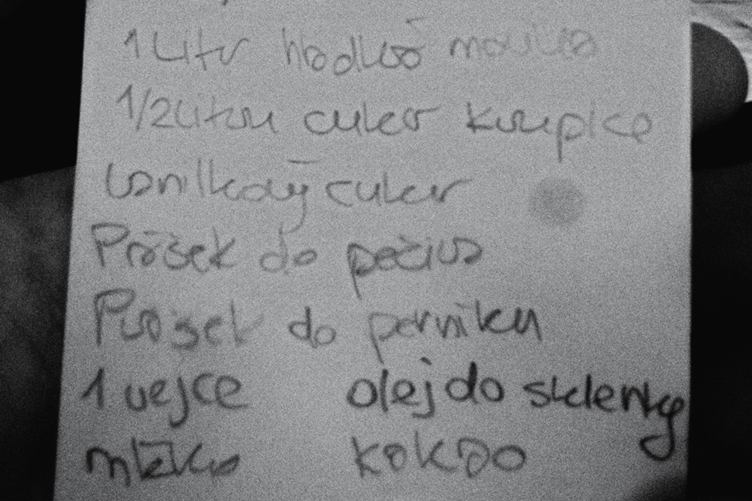 1 Litr hladká mouka
1/2 Litru cukr krupice
Vanilkový cukr
Prášek do pečiva
Prášek do perníku
1 vejce olej do sklenky
mléko kakao